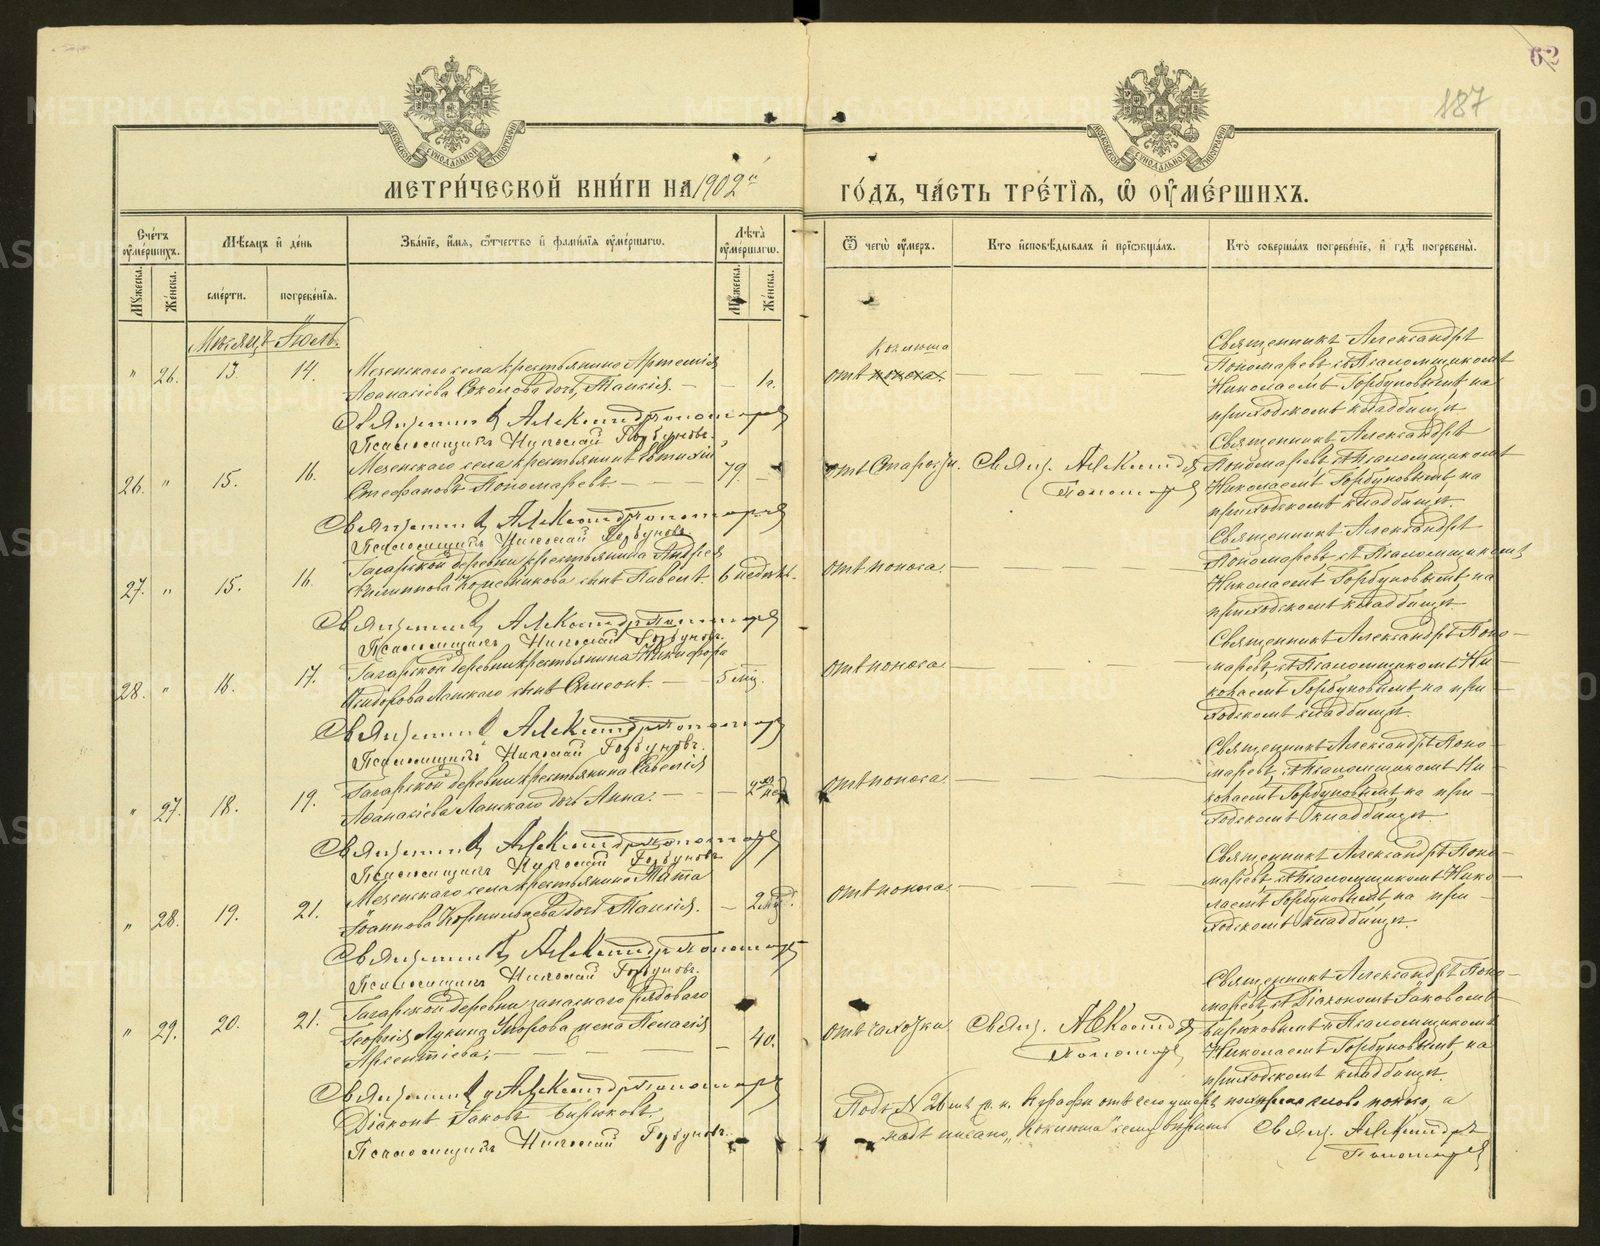 62
187
МЕТРИ́ЧЕСКОЙ КНИ́ГИ НА 1902й ГО́ДЪ, ЧА́СТЬ ТРЕ́ТЇѦ, Ѽ ОУМЕ́РШИХЪ.
Счетъ оумершихъ.
Мѣсяцъ и день
Званіе, имя, отчество и фамилія оумершагѡ.
Лѣта оумершагѡ.
Ѿ чегѡ оумеръ.
Кто исповѣдывалъ и приѡбщалъ.
Кто совершалъ погребеніе, и гдѣ погребены.
Мужеска.
Женска.
смерти.
погребенія.
Мужеска.
Женска.
Мѣсяцъ Іюль.
" 26. 13. 14. Мезенскаго села крестьянина Артемія
Аѳанасіева Соколова дочь Таисія. — — 1 г.
коклюша
отъ поноса.
Священникъ Александръ
Пономаревъ съ Псаломщикомъ
Николаемъ Горбуновымъ на
приходскомъ кладбищѣ
Священникъ Александръ Пономарев
Псаломщикъ Николай Горбуновъ.
26. " 15. 16. Мезенскаго села крестьянинъ Евтихій
Стефановъ Пономаревъ. — — 79. —
отъ старости. Свящ. Александръ
Пономарев
Священникъ Александръ
Пономаревъ съ Псаломщикомъ
Николаемъ Горбуновымъ, на
приходскомъ кладбищѣ.
Священникъ Александръ Пономарев
Псаломщикъ Николай Горбуновъ
27. " 15. 16. Гагарской деревни крестьянина Андрея
Филиппова сынъ Павелъ. 6 недѣль.
отъ поноса.
Священникъ Александръ
Пономаревъ съ Псаломщикомъ
Николаемъ Горбуновымъ, на
приходскомъ кладбищѣ
Священникъ Александръ Пономарев
Псаломщикъ Николай Горбуновъ.
28. " 16. 17. Гагарской деревни крестьянина Никифора
Исидорова сынъ Симеонъ. — — 5 мѣс.
отъ поноса
Священникъ Александръ Поно-
маревъ, съ Псаломщикомъ Ни-
колаемъ Горбуновымъ, на при-
ходскомъ кладбищѣ.
Священникъ Александръ Пономарев
Псаломщикъ Николай Горбуновъ.
" 27. 18. 19. Гагарской деревни крестьянина Савелія
Аѳанасіева дочь Анна. — — 2 нед
отъ поноса
Священникъ Александръ Поно-
маревъ, съ Псаломщикомъ Ни-
колаемъ Горбуновымъ на при-
ходскомъ кладбищѣ
Священникъ Александръ Пономарев
Псаломщикъ Николай Горбуновъ
" 28. 19. 21. Мезенскаго села крестьянина
Іоаннова дочь Таисія. — 2 нед.
отъ поноса
Священникъ Александръ Поно-
маревъ съ Псаломщикомъ Нико-
лаемъ Горбуновымъ на при-
ходскомъ кладбищѣ.
Священникъ Александръ Пономарев
Псаломщикъ Николай Горбуновъ.
" 29. 20. 21. Гагарской деревни, запаснаго рядоваго
Георгія Лукина жена Пелагія
— — — 40.
отъ чахотки Свящ. Александръ
Пономарев
Священникъ Александръ Поно-
маревъ съ Діакономъ Іаковомъ
Бирюковымъ и Псаломщикомъ
Николаемъ Горбуновымъ, на
приходскомъ кладбищѣ.
Священникъ Александръ Пономарев
Діаконъ Іаковъ Бирюковъ.
Псаломщикъ Николай Горбуновъ.
Подъ № 26мъ ж. п. въ графѣ отъ чего умеръ слово поноса, а
надъ писано „коклюша" сему вѣрить Свящ. Александръ
Пономарев